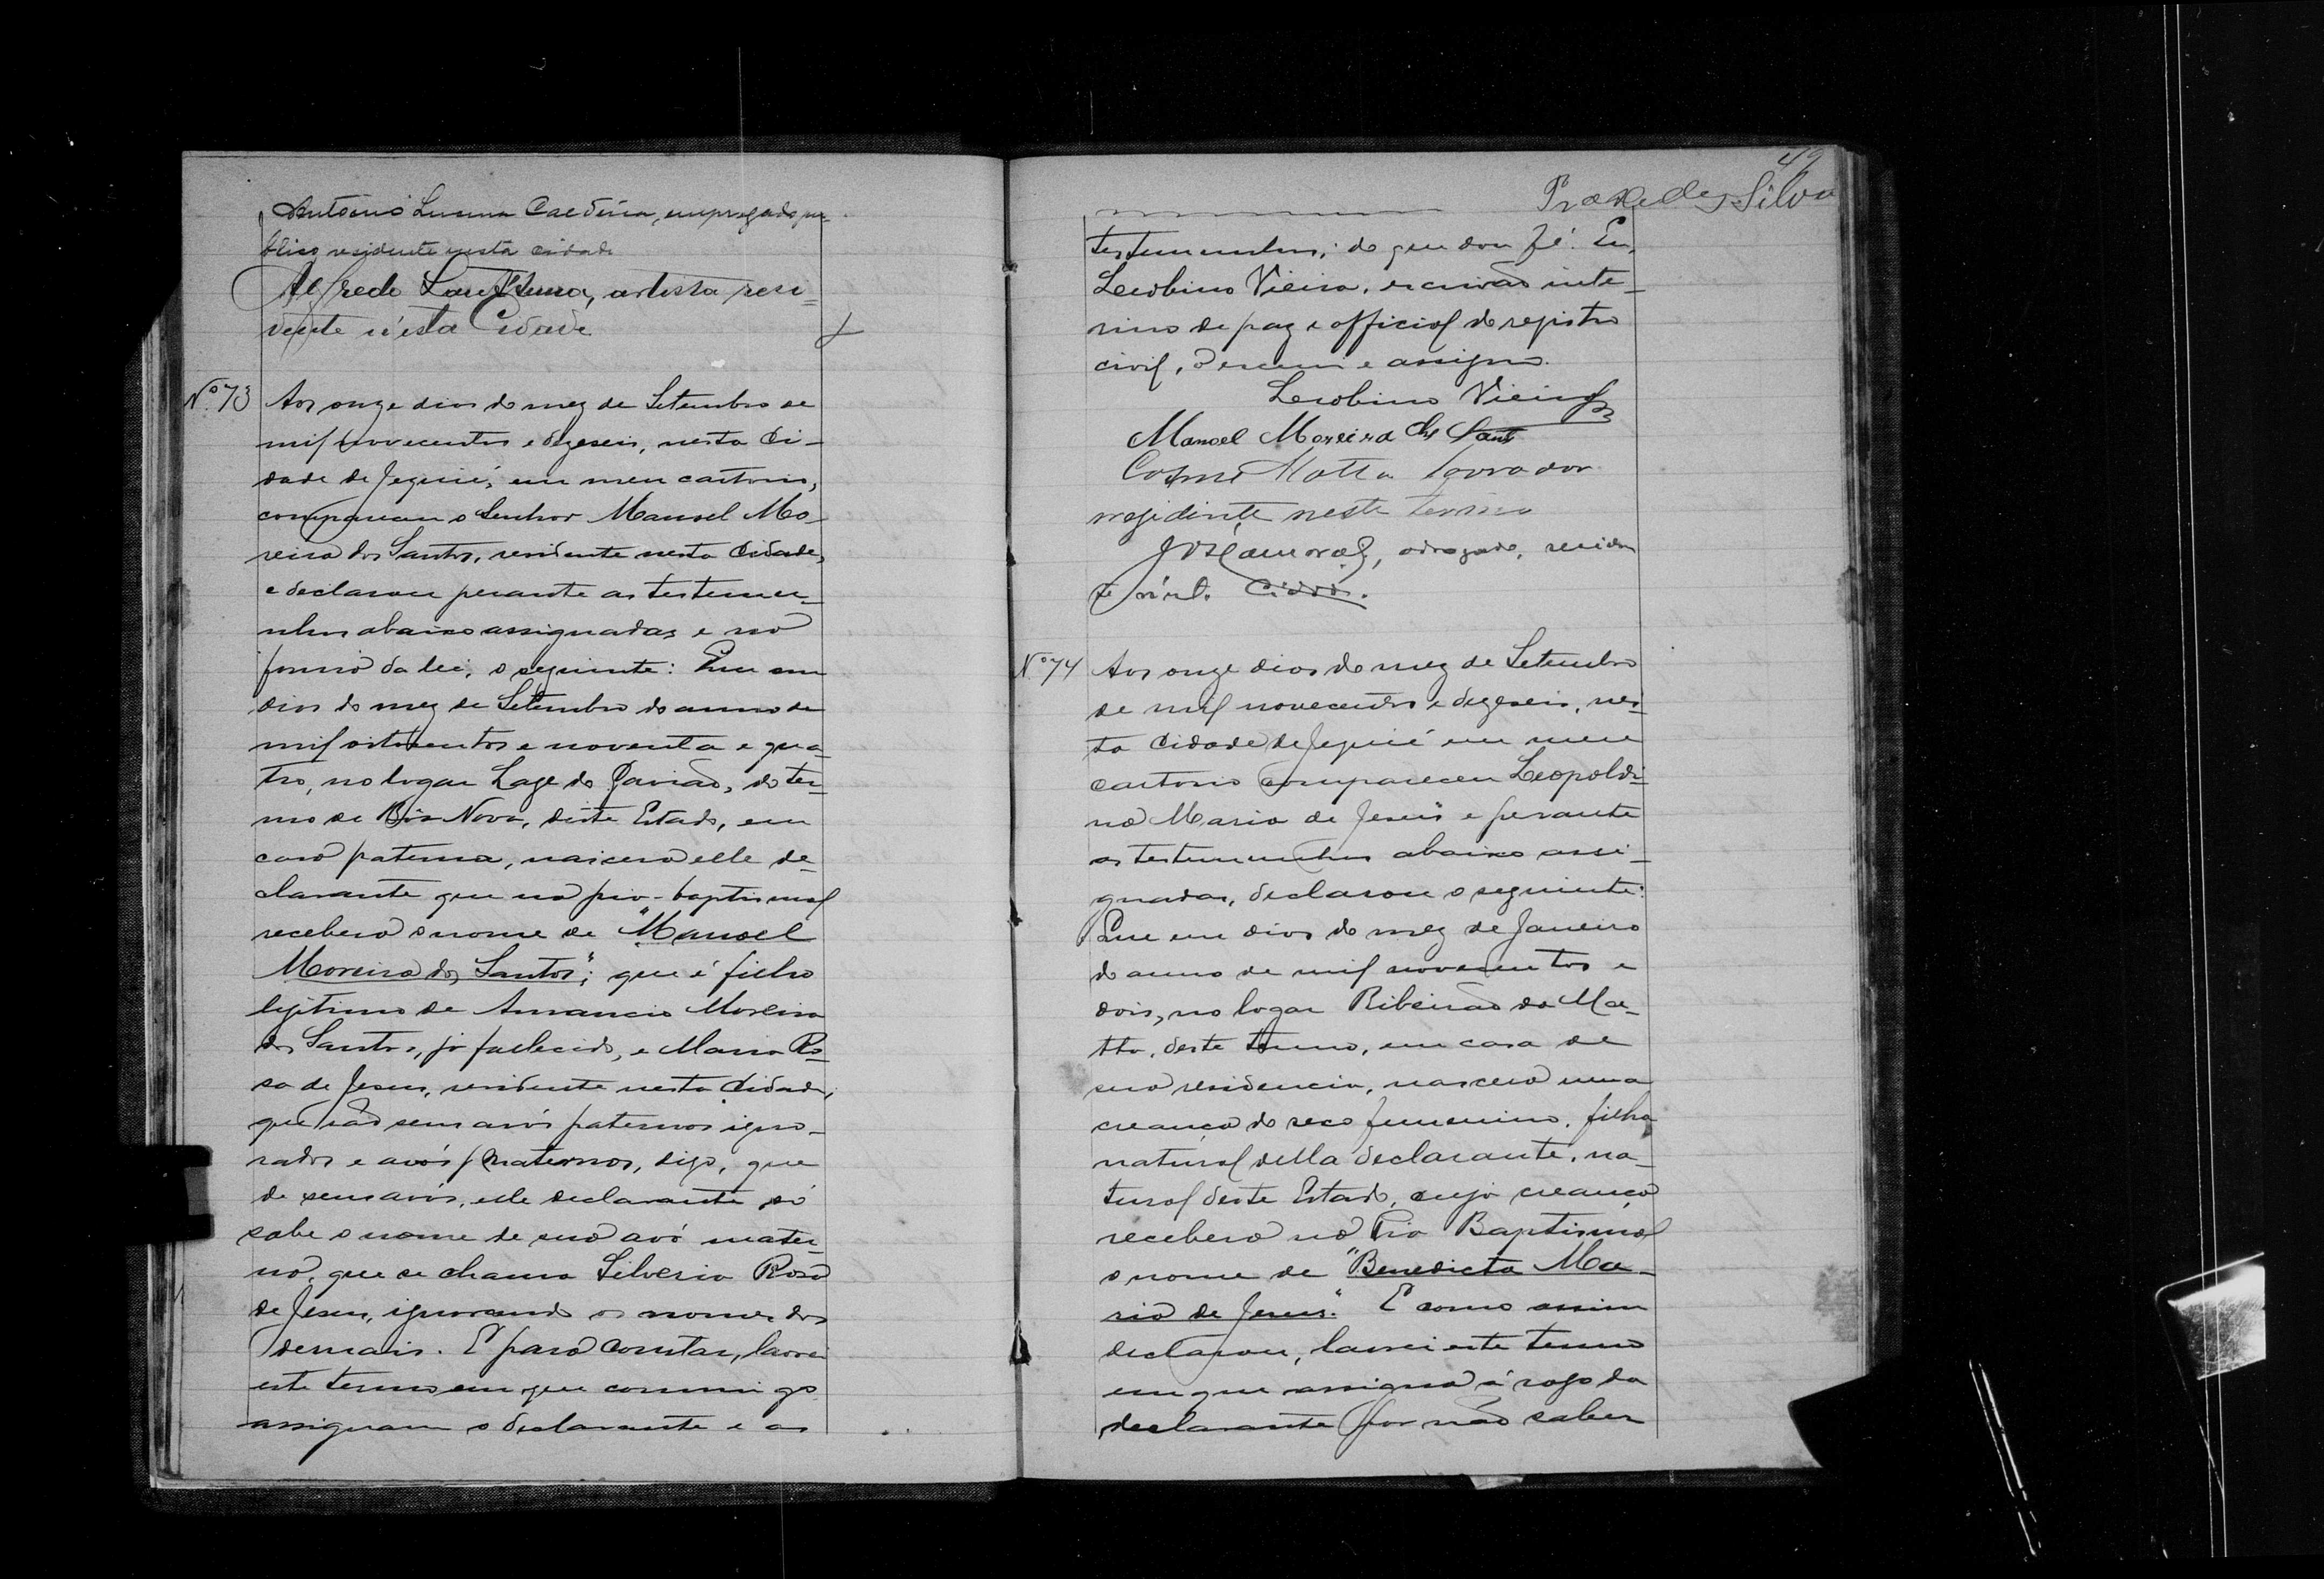 Antonio Lucena Caldeira, empregado pu-
blico residente nesta cidade
Alfredo Sant'Anna, artista resi-
dente n'esta Cidade
Nº 73 Aos onze dias do mez de Setembro de
mil novecentos e dezeseis, nesta Ci-
dade de Jequié, em meu cartorio,
compareceu o Senhor Manoel Mo-
reira dos Santos, residente nesta Cidade,
e declarou perante as testemu-
nhas abaixo assignadas e na
forma da lei, o seguinte: Que em
dias do mez de Setembro do anno de
mil oitocentos e noventa e qua-
tro, no logar Lage do Gavião, do ter-
mo de Bôa Nova, deste Estado, em
casa paterna, nascera elle de-
clarante que na pia-baptismal
recebera o nome de "Manoel
Moreira dos Santos"; que é filho
legitimo de Amancio Moreira
dos Santos, já fallecido, e Maria Ro-
sa de Jesus, residente nesta Cidade,
que são seus avós paternos igno-
rados e avós maternos, digo, que
de seus avós, elle declarante só
sabe o nome de sua avó mater-
na, que se chama Silveria Rosa
de Jesus, ignorando os nomes dos
demais. E para constar, lavrei
este termo em que commigo
assignam o declarante e as
49
Praxedes Silva
testemunhas; do que dou fé. Eu,
Leobino Vieira, escrivão inte-
rino de paz e official do registro
civil, o escrevi e assigno.
Leobino Vieira
Manoel Moreira dos Santos
Cosme Motta lavrador
residente neste termo
José Amoral, advogado, residen
te n'esta Cidade.
Nº 74 Aos onze dias do mez de Setembro
de mil novecentos e dezeseis, nes-
ta Cidade de Jequié em meu
cartorio compareceu Leopoldi-
na Maria de Jesus e perante
as testemunhas abaixo assi-
gnadas, declarou o seguinte:
Que em dias do mez de Janeiro
do anno de mil novecentos e
dois, no logar Ribeirão da Ma-
tta, deste termo, em casa de
sua residencia, nascera uma
creança do sexo femenino, filha
natural della declarante, na-
tural deste Estado, cuja creança
recebera na Pia Baptismal
o nome de "Benedicta Ma-
ria de Jesus." E como assim
declarou, lavrei este termo
em que assigna á rogo da
declarante por não saber